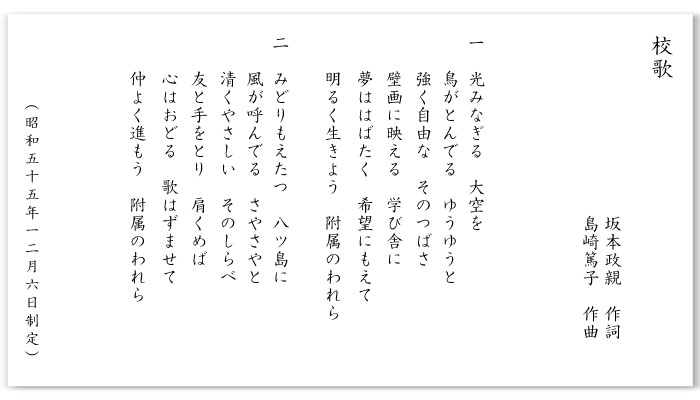 校歌
坂本政親　作詞
島崎篤子　作曲
一　光みなぎる　大空を
鳥がとんでる　ゆうゆうと
強く自由な　そのつばさ
壁画に映える　学び舎に
夢ははばたく　希望にもえて
明るく生きよう　附属のわれら
二　みどりもえたつ　八ツ島に
風が呼んでる　さやさやと
清くやさしい　そのしらべ
友と手をとり　肩くめば
心はおどる　歌はずませて
仲よく進もう　附属のわれら
（昭和五十五年一二月六日制定）